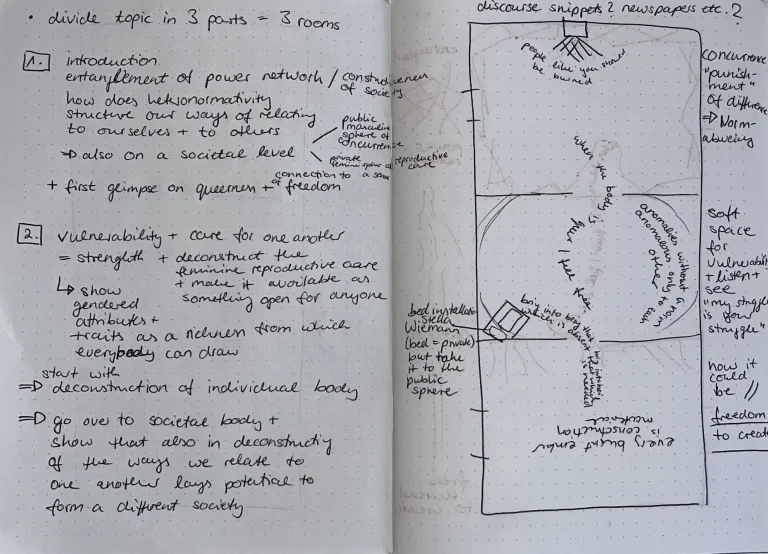 • divide topic in 3 parts = 3 rooms
1. introduction
entanglement of power network / constructiveness
of society
how does heteronormativity
structure our ways of relating
to ourselves + to others
public
masculine
sphere of
concurrence
⇒ also on a societal level
private
feminine sphere of reproductive
care
connection to a sense
of
+ first glimpse on queerness + freedom
2. vulnerability + care for one another
= strength + deconstruct the
feminine reproductive care
+ make it available as
something open for anyone
↳ show
gendered
attributes +
traits as a richness from which
everybody can draw
start with
⇒ deconstruction of individual body
⇒ go over to societal body +
show that also in deconstructing
of the ways we relate to
one another lays potential to
form a different society
discourse snippets? newspapers etc.?
people like you should
be burned
concurrence
"punish-
ment"
of difference
⇒ Norm-
abweing
when the body is
four I feel free
anomalies without a norm
anomalous only to each
other
soft
space
for
vulnerability
+ listen +
see
"my struggle
is your
struggle"
bed installation
Stella
Wiemann
(bed = private)
but take
it to the
public
sphere
bring into being that
which is absent
but into being
that which
is needed
every burnt ember
is construction
material
how it
could
be //
freedom
to create